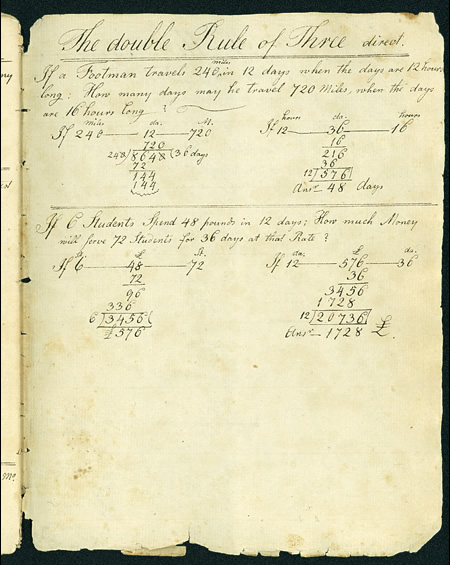 The double Rule of Three direct.
If a Footman travels 240 miles, in 12 days when the days are 12 hours
long: How many days may he travel 720 Miles, when the days
are 16 hours long?
miles da. M.
If 240 — 12 — 720
720
240)8640(36 days
72
144
144
hours da. hours
If 12 — 36 — 16
16
216
36
12)576(
Answ. 48 days
If 6 Students Spend 48 pounds in 12 days: How much Money
will serve 72 Students for 36 days at that Rate?
£
If 6 — 48 — 72
72
96
336
6)3456(
£576
da. £ da.
If 12 — 576 — 36
36
3456
1728
12)20736(
Answ. — 1728 £